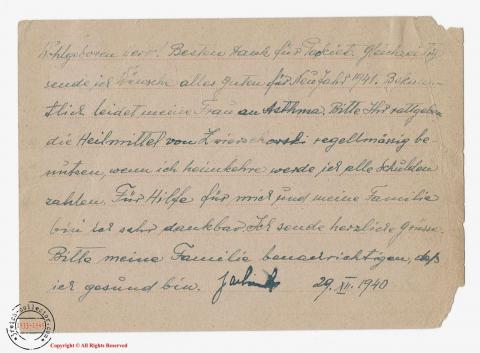 Wohlgeboren Herr! Besten Dank für Packiet. Gleichen Tag
sende ich Wünsche alles guten für Neu Jahr 1941. Bekan
tlich leidet meine Frau an Asthma. Bitte Ihr rattgeben
die Heilmittel von regelmässig be-
nutzen, wenn ich heimkehre werde ich alle Schulden
zahlen. Für Hilfe für mich und meine Familie
bin ich sehr dankbar. Ich sende herzliche Grüsse.
Bitte meine Familie benachrichtigen, daß
ich gesund bin. 29. XII. 1940
Copyright © All Rights Reserved